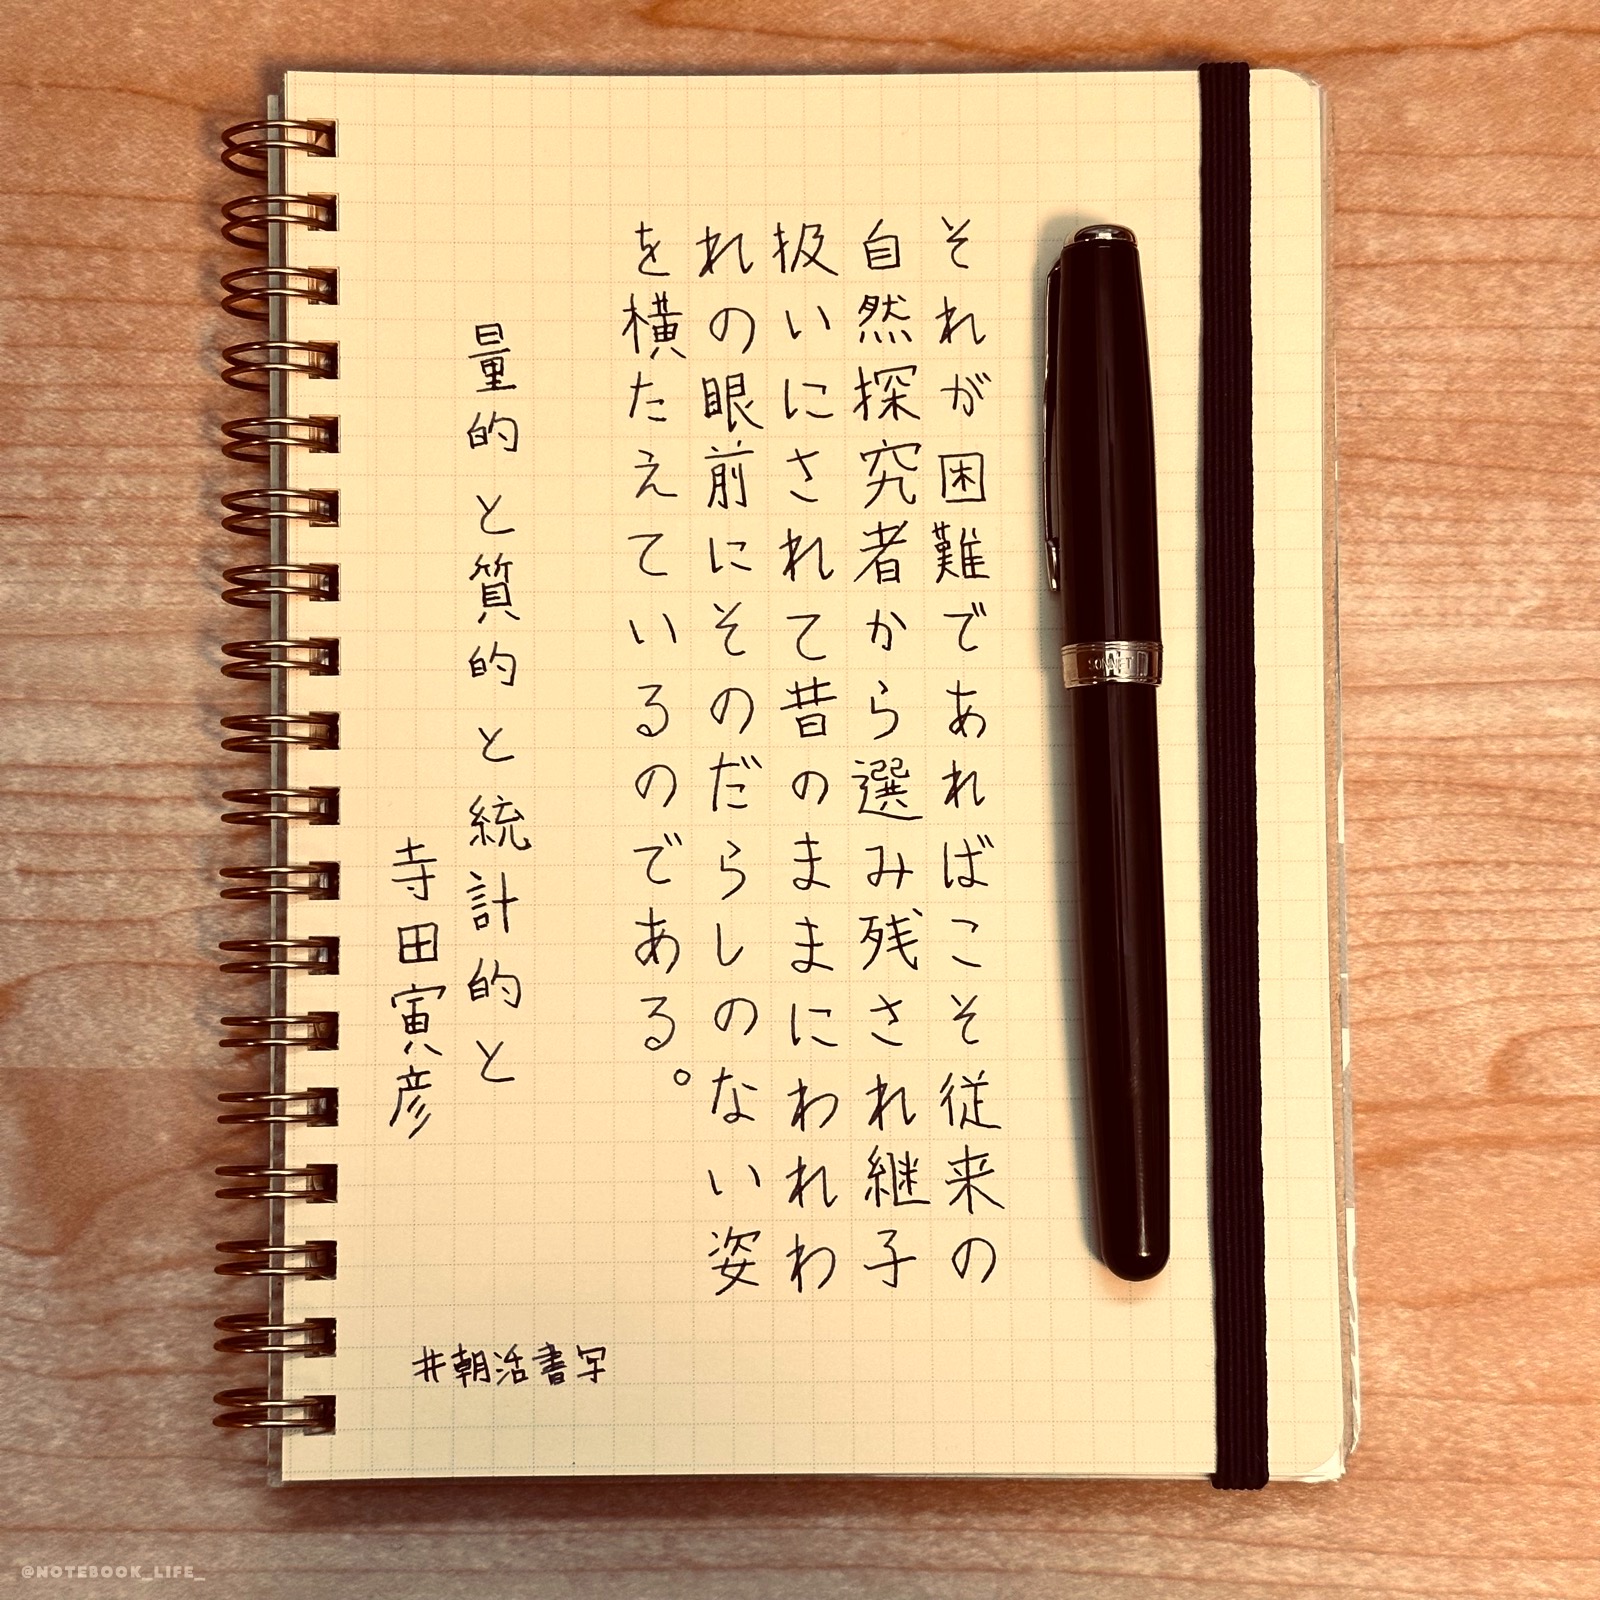 それが困難であればこそ従来の
自然探究者から選み残され継子
扱いにされて昔のままにわれわ
れの眼前にそのだらしのない姿
を横たえているのである。
量的と質的と統計的と
寺田寅彦
#朝活書写
SONNET
@NOTEBOOK_LIFE_